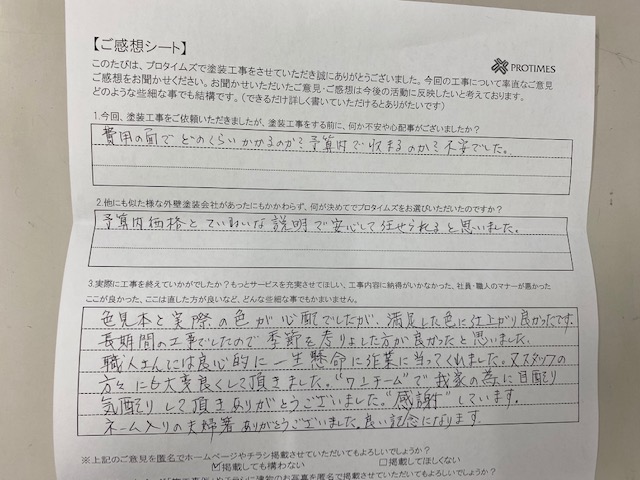 【ご感想シート】
PROTIMES
このたびは、プロタイムズで塗装工事をさせていただき誠にありがとうございました。今回の工事について率直なご意見
ご感想をお聞かせください。お聞かせいただいたご意見・ご感想は今後の活動に反映したいと考えております。
どのような些細な事でも結構です。（できるだけ詳しく書いていただけるとありがたいです）
1.今回、塗装工事をご依頼いただきましたが、塗装工事をする前に、何か不安や心配事がございましたか？
費用の面でどのくらいかかるのか？予算内で収まるのか？不安でした。
2.他にも似た様な外壁塗装会社があったにもかかわらず、何が決めてでプロタイムズをお選びいただいたのですか？
予算内価格とていねいな説明で安心して任せられると思いました。
3.実際に工事を終えていかがでしたか？もっとサービスを充実させてほしい、工事内容に納得がいかなかった、社員・職人のマナーが悪かった
ここが良かった、ここは直した方が良いなど、どんな些細な事でもかまいません。
色見本と実際の色が心配でしたが、満足した色に仕上がり良かったです。
長期間の工事でしたので季節を考りょした方が良かったと思いました。
職人さんには良心的に一生懸命に作業に当ってくれました。又スタッフの
方々にも大変良くして頂きました。"ワンチーム"で我家の為に目配り
気配りして頂きありがとうございました。"感謝"しています。
ネーム入りの夫婦箸ありがとうございました。良い記念になります。
※上記のご意見を匿名でホームページやチラシ掲載させていただいてもよろしいでしょうか？
☑掲載しても構わない □掲載してほしくない